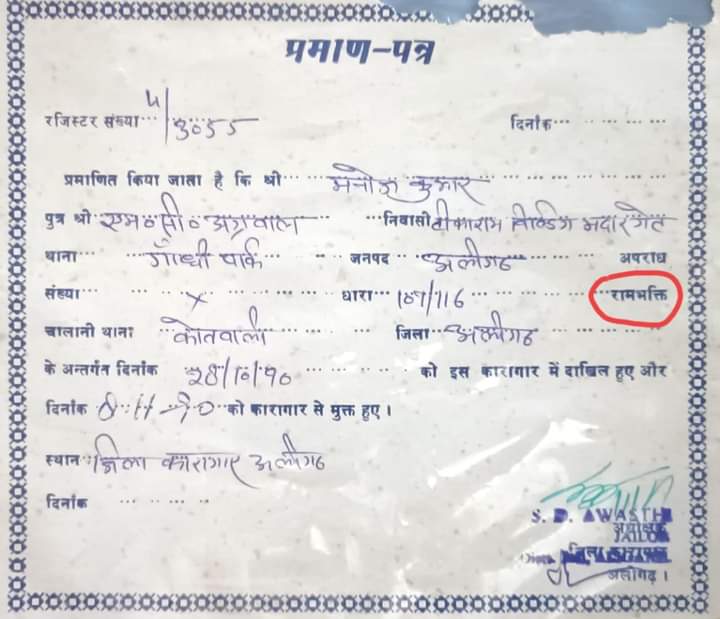 प्रमाण-पत्र
रजिस्टर संख्या 4/3055 दिनांक
प्रमाणित किया जाता है कि श्री मनोज कुमार
पुत्र श्री एम० सी० अग्रवाल निवासी टीकाराम बिल्डिंग मदारगेट
थाना गाँधी पार्क जनपद अलीगढ अपराध
संख्या x धारा 107/116 रामभक्ति
चालानी थाना कोतवाली जिला अलीगढ
के अन्तर्गत दिनांक 28/10/90 को इस कारागार में दाखिल हुए और
दिनांक 8-11-90 को कारागार से मुक्त हुए।
स्थान जिला कारागार अलीगढ
दिनांक
S. D. AWASTHI
अधीक्षक
JAILOR
जिला कारागार
अलीगढ़।